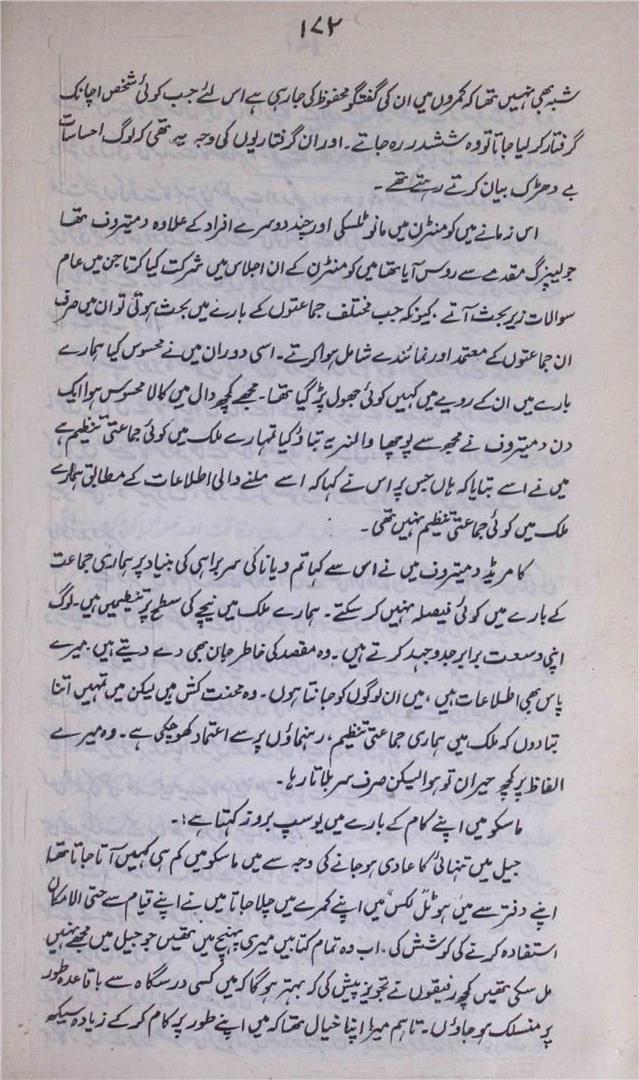 ۱۷۲
شبہ بھی نہیں تھا کہ کمروں میں ان کی گفتگو محفوظ کی جا رہی ہے اس لئے جب کوئی شخص اچانک
گرفتار کر لیا جاتا تو وہ ششدر رہ جاتے۔ اور ان گرفتاریوں کی وجہ یہ تھی کہ لوگ احساسات
بے دھڑک بیان کرتے رہتے تھے۔
اس زمانے میں کومنٹرن میں مانوئلسکی اور چند دوسرے افراد کے علاوہ دمیتروف تھا
جو لیپزگ مقدمے سے روس آیا تھا میں کومنٹرن کے ان اجلاس میں شرکت کیا کرتا جن میں عام
سوالات زیر بحث آتے۔ کیونکہ جب مختلف جماعتوں کے بارے میں بحث ہوتی تو ان میں صرف
ان جماعتوں کے معتمد اور نمائندے شامل ہوا کرتے۔ اسی دوران میں نے محسوس کیا ہمارے
بارے میں ان کے رویے میں کہیں کوئی جھول پڑ گیا تھا۔ مجھے کچھ دال میں کالا محسوس ہوا ایک
دن دمیتروف نے مجھ سے پوچھا والنر یہ تباؤ کیا تمہارے ملک میں کوئی جماعتی تنظیم ہے
میں نے اسے بتایا کہ ہاں جس پر اس نے کہا کہ اسے ملنے والی اطلاعات کے مطابق ہمارے
ملک میں کوئی جماعتی تنظیم نہیں تھی۔
کامریڈ دمیتروف میں نے اس سے کہا تم دیانا کی سربراہی کی بنیاد پر ہماری جماعت
کے بارے میں کوئی فیصلہ نہیں کر سکتے۔ ہمارے ملک میں نیچے کی سطح پر تنظیمیں ہیں۔ لوگ
اپنی دسعت برابر جدوجہد کرتے ہیں۔ وہ مقصد کی خاطر جان بھی دے دیتے ہیں۔ میرے
پاس بھی اطلاعات ہیں، میں ان لوگوں کو جانتا ہوں۔ وہ محنت کش ہیں لیکن میں تمہیں اتنا
تبادوں کہ ملک میں ہماری جماعتی تنظیم، رہنماؤں پر سے اعتماد کھو چکی ہے۔ وہ میرے
الفاظ پر کچھ حیران تو ہوا لیکن صرف سر ہلاتا رہا۔
ماسکو میں اپنے کام کے بارے میں یوسپ بروز کہتا ہے:۔
جیل میں تنہائی کا عادی ہو جانے کی وجہ سے میں ماسکو میں کم ہی کہیں آتا جاتا تھا
اپنے دفتر سے میں ہوٹل لکس میں اپنے کمرے میں چلا جاتا میں نے اپنے قیام سے حتی الامکان
استفادہ کرنے کی کوشش کی۔ اب وہ تمام کتابیں میری پہنچ میں تھیں جو جیل میں مجھے نہیں
مل سکی تھیں کچھ رفیقوں نے تجویز پیش کی کہ بہتر ہوگا کہ میں کسی درسگاہ سے باقاعدہ طور
پر منسلک ہو جاؤں۔ تاہم میرا اپنا خیال تھا کہ میں اپنے طور پر کام کر کے زیادہ سیکھ